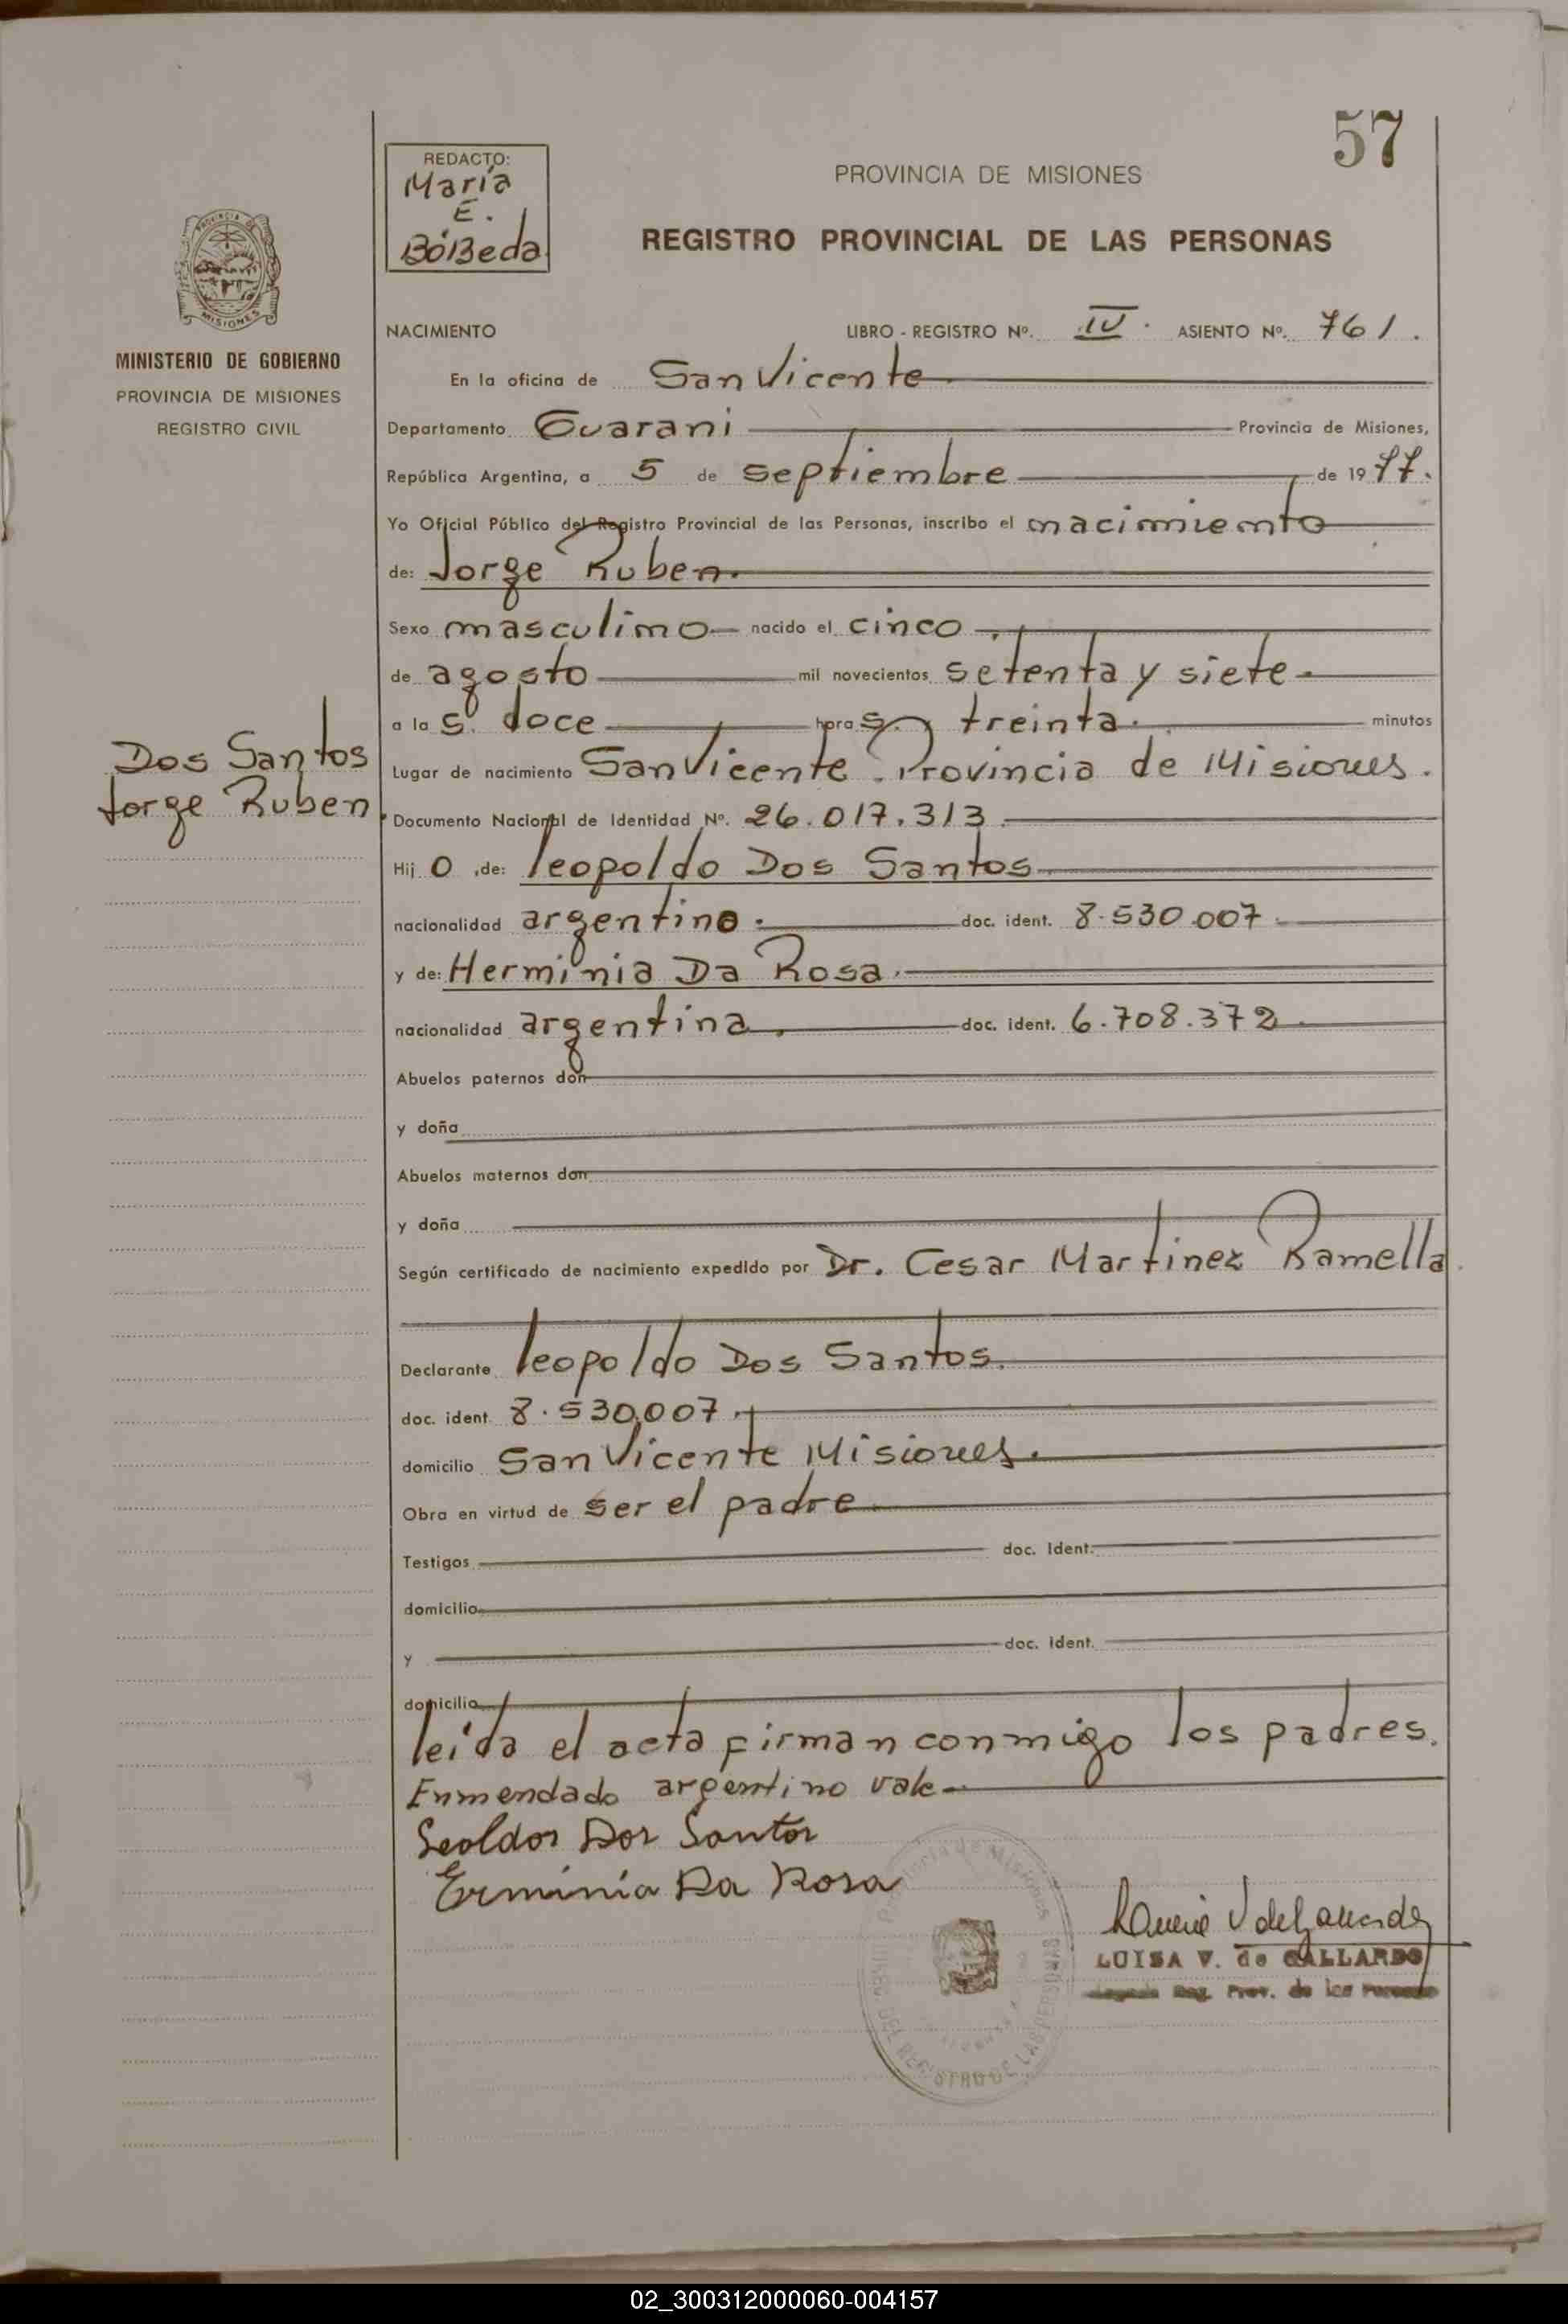 57
REDACTO:
María
E.
BóBeda
PROVINCIA DE MISIONES
REGISTRO PROVINCIAL DE LAS PERSONAS
MISIONES
MINISTERIO DE GOBIERNO
PROVINCIA DE MISIONES
REGISTRO CIVIL
NACIMIENTO LIBRO - REGISTRO Nº. IV. ASIENTO Nº. 761.
En la oficina de San Vicente
Departamento Guarani Provincia de Misiones,
República Argentina, a 5 de septiembre de 1977.
Yo Oficial Público del Registro Provincial de las Personas, inscribo el nacimiento
de: Jorge Ruben.
Sexo masculino nacido el cinco.
de agosto mil novecientos setenta y siete.
a la s. doce hora s. y treinta. minutos
Dos Santos
Jorge Ruben.
Lugar de nacimiento San Vicente. Provincia de Misiones.
Documento Nacional de Identidad Nº. 26.017.313.
Hij o ,de: Leopoldo Dos Santos.
nacionalidad argentino. doc. ident. 8.530.007.
y de: Herminia Da Rosa.
nacionalidad argentina. doc. ident. 6.708.372.
Abuelos paternos don
y doña
Abuelos maternos don
y doña
Según certificado de nacimiento expedido por Dr. Cesar Martinez Ramella.
Declarante Leopoldo Dos Santos.
doc. ident. 8.530.007.
domicilio San Vicente Misiones.
Obra en virtud de ser el padre.
Testigos doc. Ident.
domicilio
y doc. ident.
domicilio
leída el acta firman conmigo los padres.
Enmendado argentino vale.
Leoldos Dos Santos
Erminia Da Rosa
Provincia de Misiones
DEL REGISTRO DE LAS PERSONAS
LUISA V. de GALLARDO
Reg. Prov. de las Personas
02_300312000060-004157